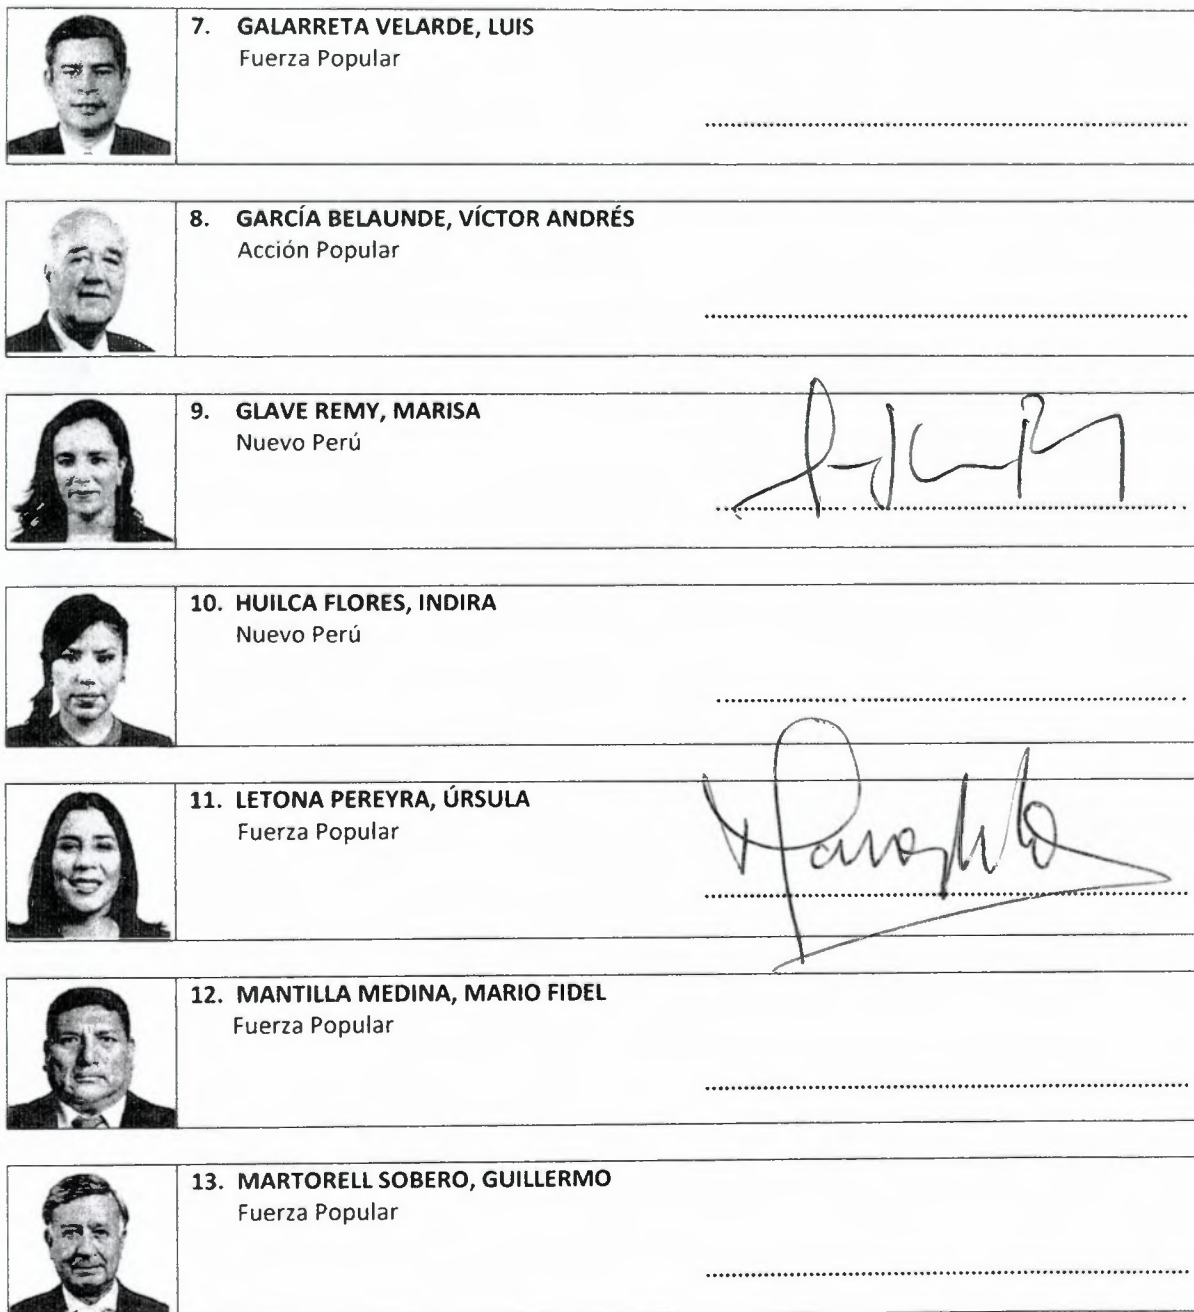 7. GALARRETA VELARDE, LUIS
Fuerza Popular
8. GARCÍA BELAUNDE, VÍCTOR ANDRÉS
Acción Popular
9. GLAVE REMY, MARISA
Nuevo Perú
10. HUILCA FLORES, INDIRA
Nuevo Perú
11. LETONA PEREYRA, ÚRSULA
Fuerza Popular
12. MANTILLA MEDINA, MARIO FIDEL
Fuerza Popular
13. MARTORELL SOBERO, GUILLERMO
Fuerza Popular